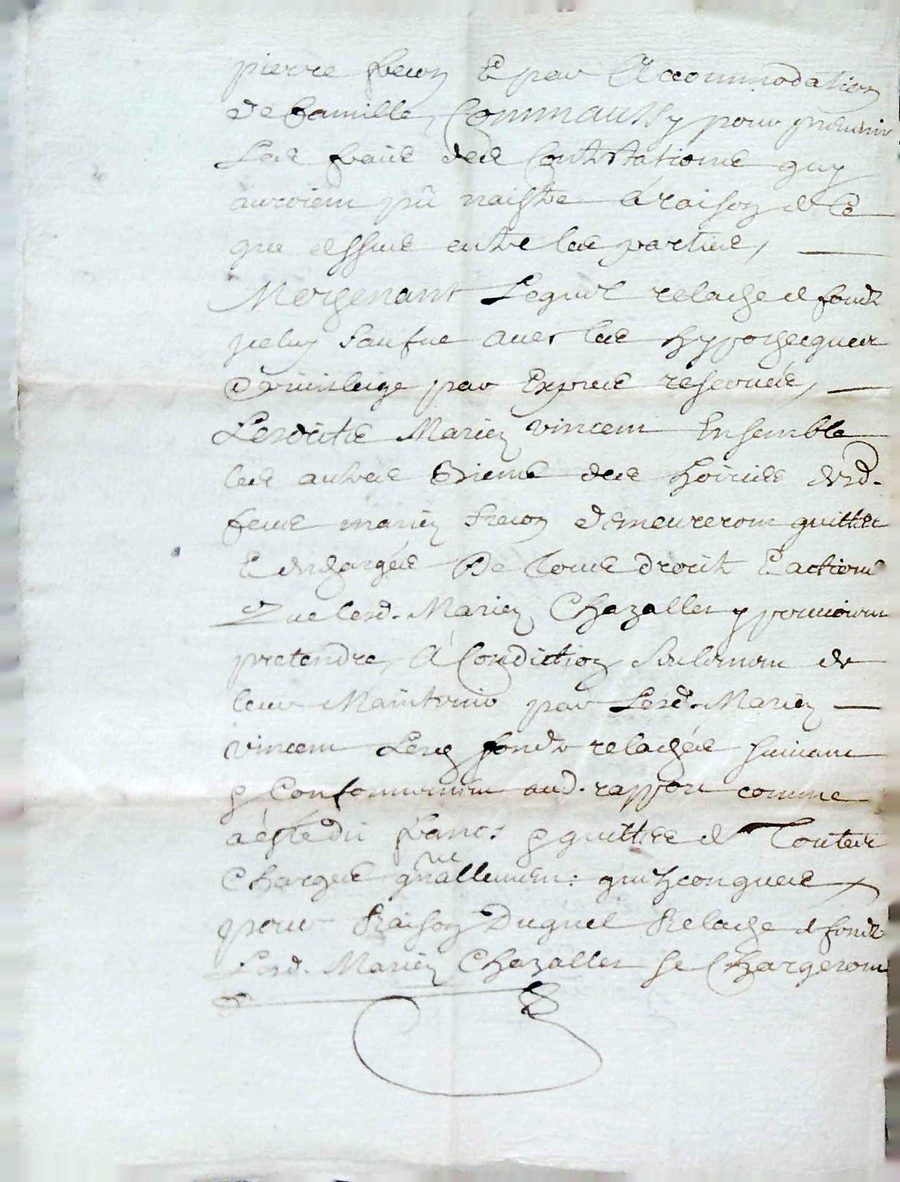 pierre frecon E par Accommodation
de famille, Comm aussy pour prevenir
Les fraix des Contestations quy
auroient pû naistre a raison de Ce
que dessus entre les parties,
Moyenant Lequel relache de fondz
jceluy sauf avec les hypothecques
E privileige par Exprès reservées,
Lesdicts Mariez vincent Ensemble
les autres Biens des hoiries desd.
feus mariez frecon demeureront quittes
E deschargées De tous droitz E actions
Que lesd. Mariez Chazalles y pourroient
pretendre, A Condiction seulement de
leur Maintenir par Lesd. Mariez
vincent Les fondz relachés suivant
E Conformement aud. rapport comme
a esté dit francs E quittes de Toutes
Charges g{n}rallement quelzconques
pour Raison Duquel Relache de fondz
Lesd. Mariez Chazalles se Chargeront